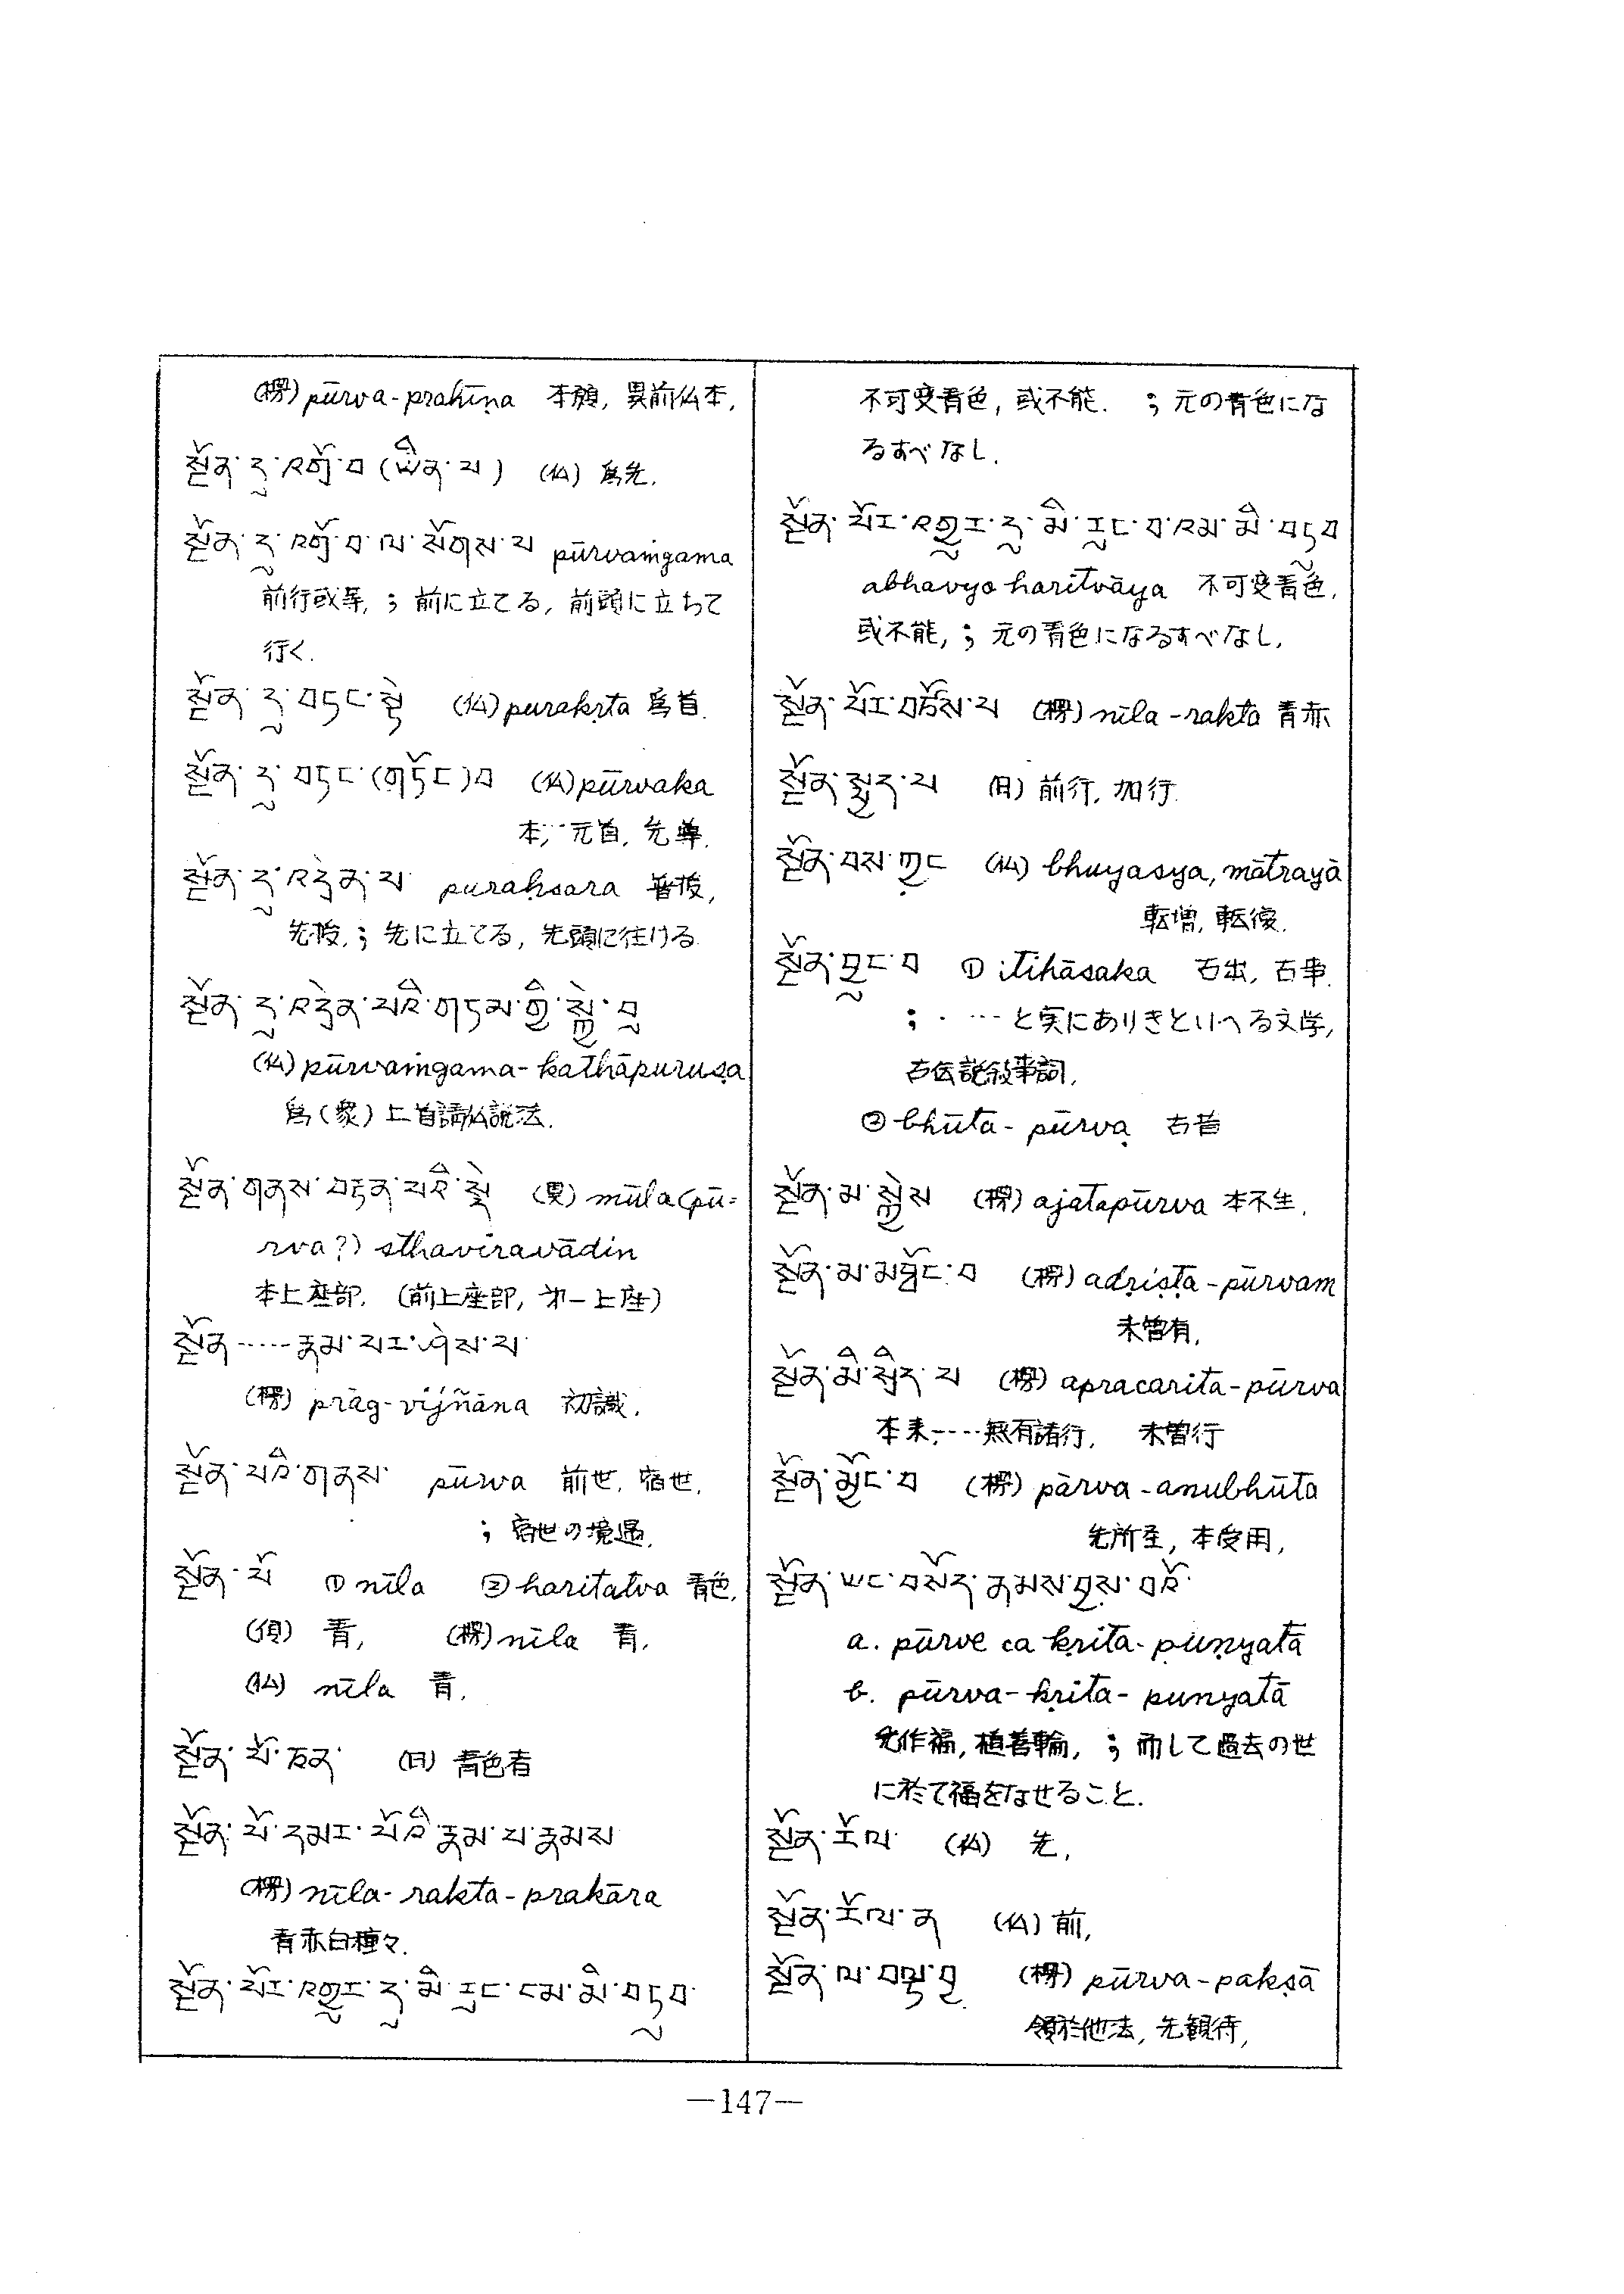 (楞) pūrva-prahīṇa 本願, 異前仏本,
སྔོན་དུ་འགྲོ་བ (ཡིན་པ) (仏) 為先.
སྔོན་དུ་འགྲོ་བ་ལ་སོགས་པ pūrvaṁgama
前行或等, ; 前に立てる, 前頭に立ちて
行く.
སྔོན་དུ་བཏང་སྟེ (仏) purakṛta 為首.
སྔོན་དུ་བཏང་(གཏོང)བ (仏) pūrvaka
本, 元首, 先導.
སྔོན་དུ་འདྲེན་པ puraḥsara 普抜,
先抜, ; 先に立てる, 先頭に往ける
སྔོན་དུ་འདྲེན་པའི་གཏམ་གྱི་སྐྱེ་བུ
(仏) pūrvaṁgama-kathāpuruṣa
為(衆)上首請仏説法.
སྔོན་གནས་བརྟན་པའི་སྡེ (異) mūla (pū-
rva?) sthaviravādin
本上座部. (前上座部, 第一上座)
སྔོན-----རྣམ་པར་ཤེས་པ
(楞) prāg-vijñāna 初識.
སྔོན་པའི་གནས་ pūrva 前世, 宿世,
; 宿世の境遇.
སྔོན་པོ ① nīla ② haritatva 青色,
青, (楞) nīla 青,
(仏) nīla 青,
སྔོན་པོ་ཅན་ 青色者
སྔོན་པོ་དམར་པོའི་རྣམ་པ་རྣམས
(楞) nīla-rakta-prakāra
青赤白種々.
སྔོན་པོར་འགྱུར་དུ་མི་རུང་ངམ་མི་བཏུབ་
—147—
不可変青色, 或不能. ; 元の青色にな
るすべなし.
སྔོན་པོར་འགྱུར་དུ་མི་རུང་བ་འམ་མི་བཏུབ
abhavyo haritvāya 不可変青色,
或不能, ; 元の青色になるすべなし,
སྔོན་པོར་བཅོས་པ (楞) nīla-rakta 青赤
སྔོན་སྦྱར་པ 前行, 加行.
སྔོན་པས་ཀྱང (仏) bhuyasya, mātrayā
転増, 転復.
སྔོན་བྱུང་བ ① itihāsaka 古出, 古事.
; ・ … と実にありきといへる文学,
古伝説叙事詞,
② bhūta-pūrva 古昔
སྔོན་མ་སྐྱེས (楞) ajatapūrva 本不生.
སྔོན་མ་མཐོང་བ (楞) adṛiṣṭa-pūrvam
未曽有,
སྔོན་མི་སྤྱིད་པ (楞) apracarita-pūrva
本来・----無有諸行, 未曽行
སྔོན་མྱོང་བ (楞) pārva-anubhūta
先所至, 本受用,
སྔོན་ཡང་བསོད་ནམས་བྱས་བའོ་
a. pūrve ca kṛita-puṇyatā
b. pūrva-kṛita-punyatā
先作福, 植善輪, ; 而して過去の世
に於て福をなせること.
སྔོན་རོལ་ (仏) 先,
སྔོན་རོལ་ན (仏) 前,
སྔོན་ལ་བལྟ་བྱ (楞) pūrva-pakṣā
領於他法, 先観待,